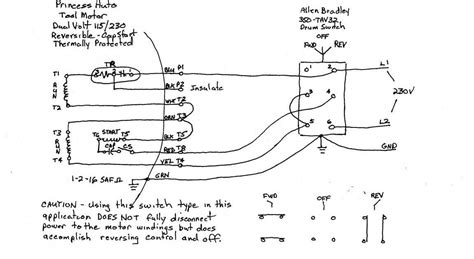 Princess Auto
Tool Motor
Dual Volt 115/230
Reversible - Cap Start
Thermally Protected
Allen Bradley
350-TAV32
Drum Switch
OFF
FWD
REV
TP
BLU P1
1
2
L1
T1
BLK P2
Insulate
RUN
T2
WHT T2
3
4
230V
T3
ORN T3
BLK T5
T8
START
T5
5
6
L2
RUN
CAP
CS
RED T8
T4
YEL T4
GND
GRN
1-2-16 SAF
CAUTION - Using this switch type in this
application DOES NOT fully disconnect
power to the motor windings but does
accomplish reversing control and off.
FWD
OFF
REV